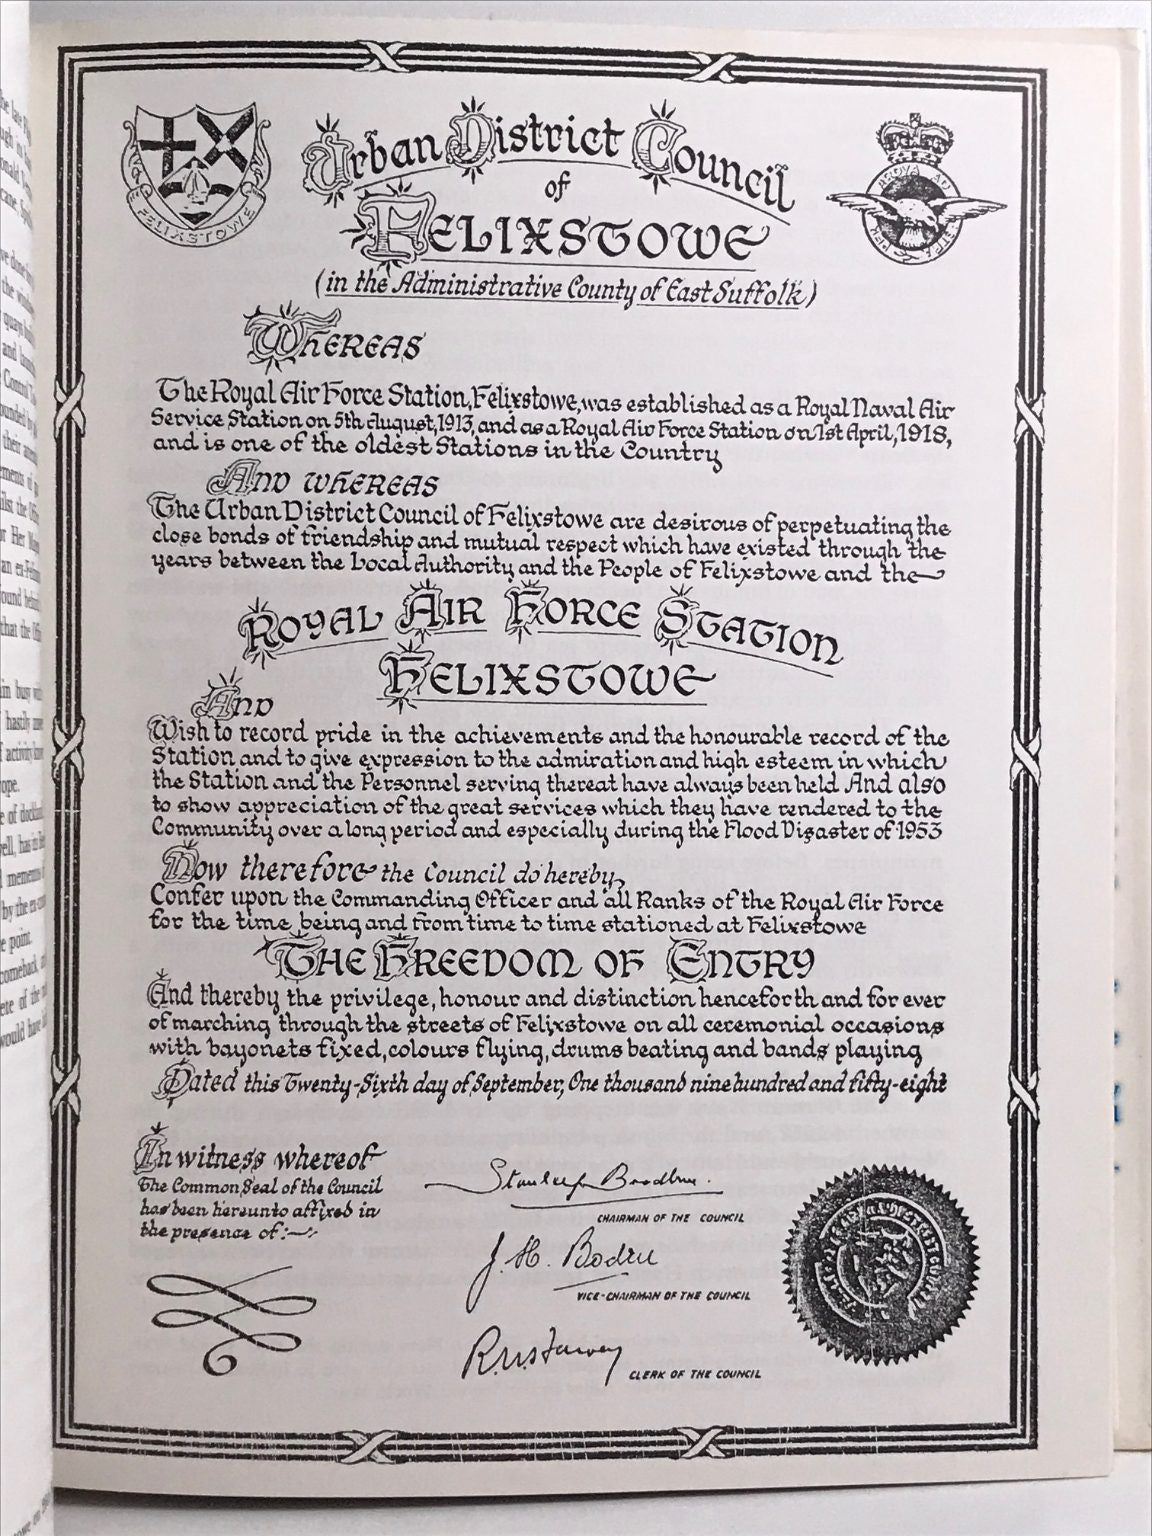 Urban District Council
of
FELIXSTOWE
FELIXSTOWE
PER ARDVA AD ASTRA
(in the Administrative County of East Suffolk)
WHEREAS
The Royal Air Force Station, Felixstowe, was established as a Royal Naval Air
Service Station on 5th August, 1913, and as a Royal Air Force Station on 1st April, 1918,
and is one of the oldest Stations in the Country
AND WHEREAS
The Urban District Council of Felixstowe are desirous of perpetuating the
close bonds of friendship and mutual respect which have existed through the
years between the Local Authority and the People of Felixstowe and the
ROYAL AIR FORCE STATION
FELIXSTOWE
AND
Wish to record pride in the achievements and the honourable record of the
Station and to give expression to the admiration and high esteem in which
the Station and the Personnel serving thereat have always been held And also
to show appreciation of the great services which they have rendered to the
Community over a long period and especially during the Flood Disaster of 1953
Now therefore the Council do hereby
Confer upon the Commanding Officer and all Ranks of the Royal Air Force
for the time being and from time to time stationed at Felixstowe
THE FREEDOM OF ENTRY
And thereby the privilege, honour and distinction henceforth and for ever
of marching through the streets of Felixstowe on all ceremonial occasions
with bayonets fixed, colours flying, drums beating and bands playing
Dated this Twenty-Sixth day of September, One thousand nine hundred and fifty-eight
In witness whereof
The Common Seal of the Council
has been hereunto affixed in
the presence of:-
Stanley
CHAIRMAN OF THE COUNCIL
J. H.
VICE-CHAIRMAN OF THE COUNCIL
CLERK OF THE COUNCIL